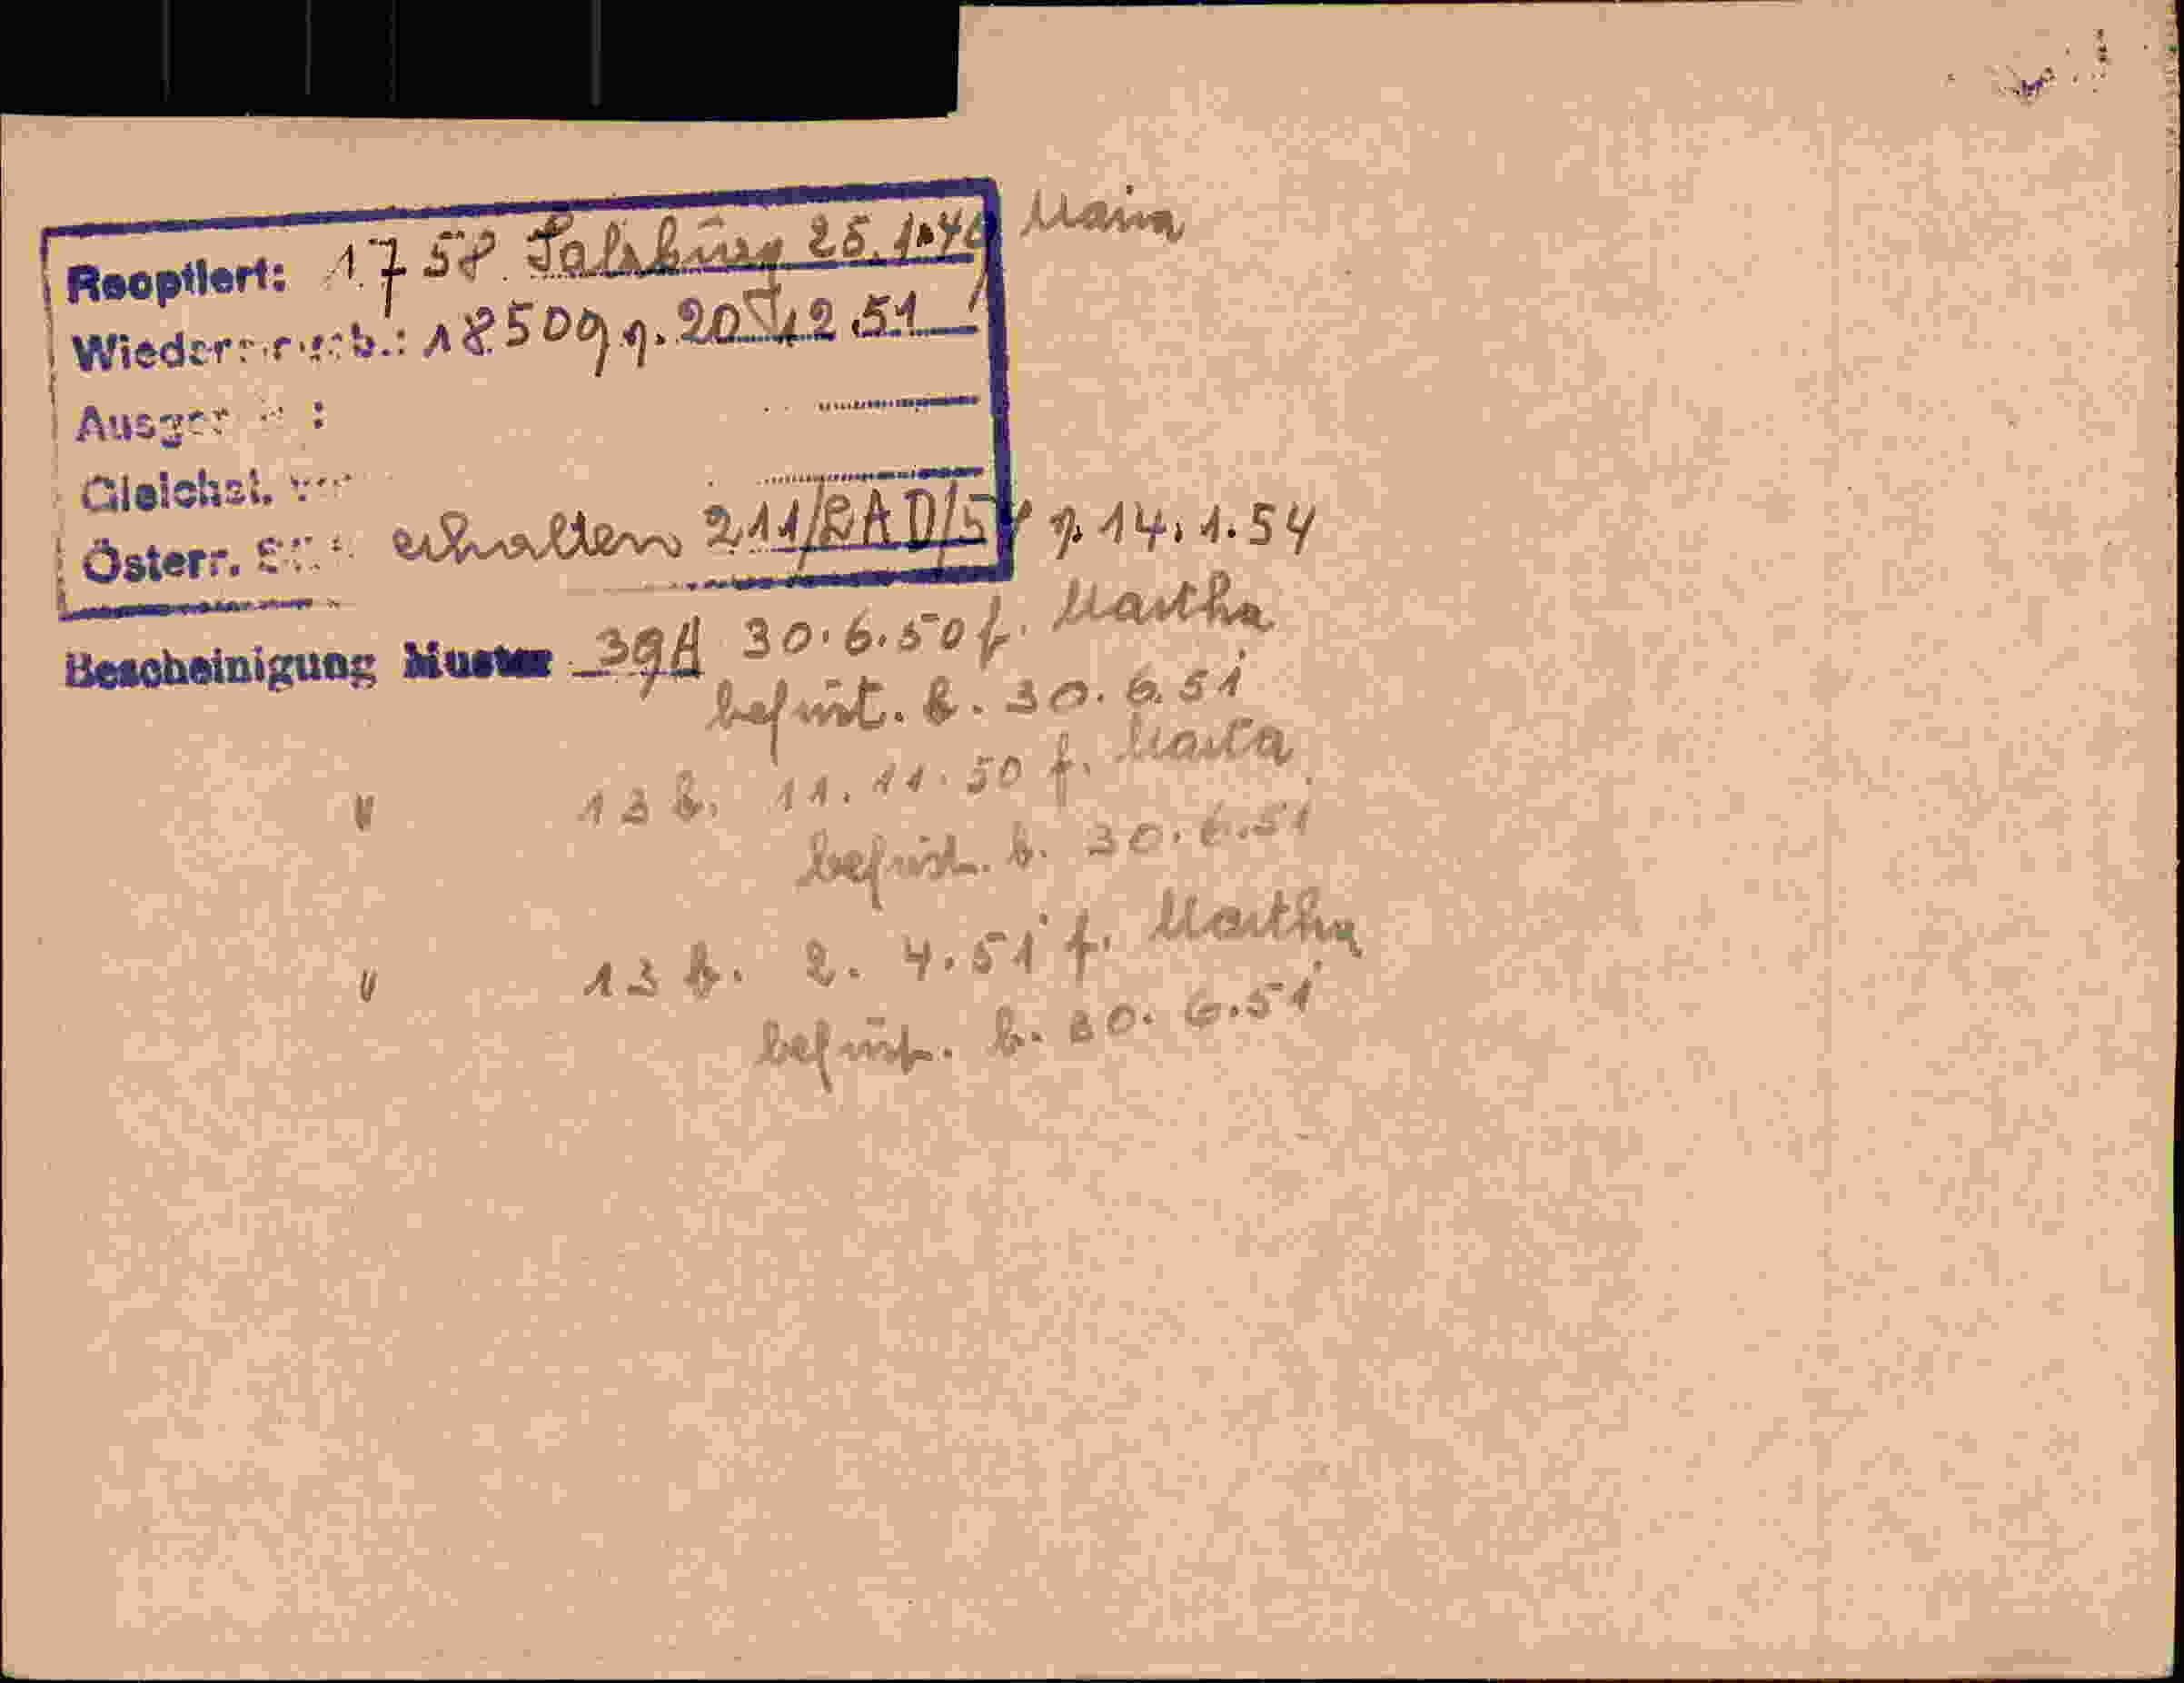 Reoptiert: 1758 Salzburg 25.1.49 Maria
Wiedererwerb.: 18509 v. 20.12.51
Ausger :
Gleichst.
Österr. erhalten 211/RAD/54 v. 14.1.54
Bescheinigung Muster 39A 30.6.50 f. Martha
befrist. b. 30.6.51
" 13 b. 11.11.50 f. Marta
befrist. b. 30.6.51
" 13 b. 2.4.51 f. Martha
befrist. b. 30.6.51